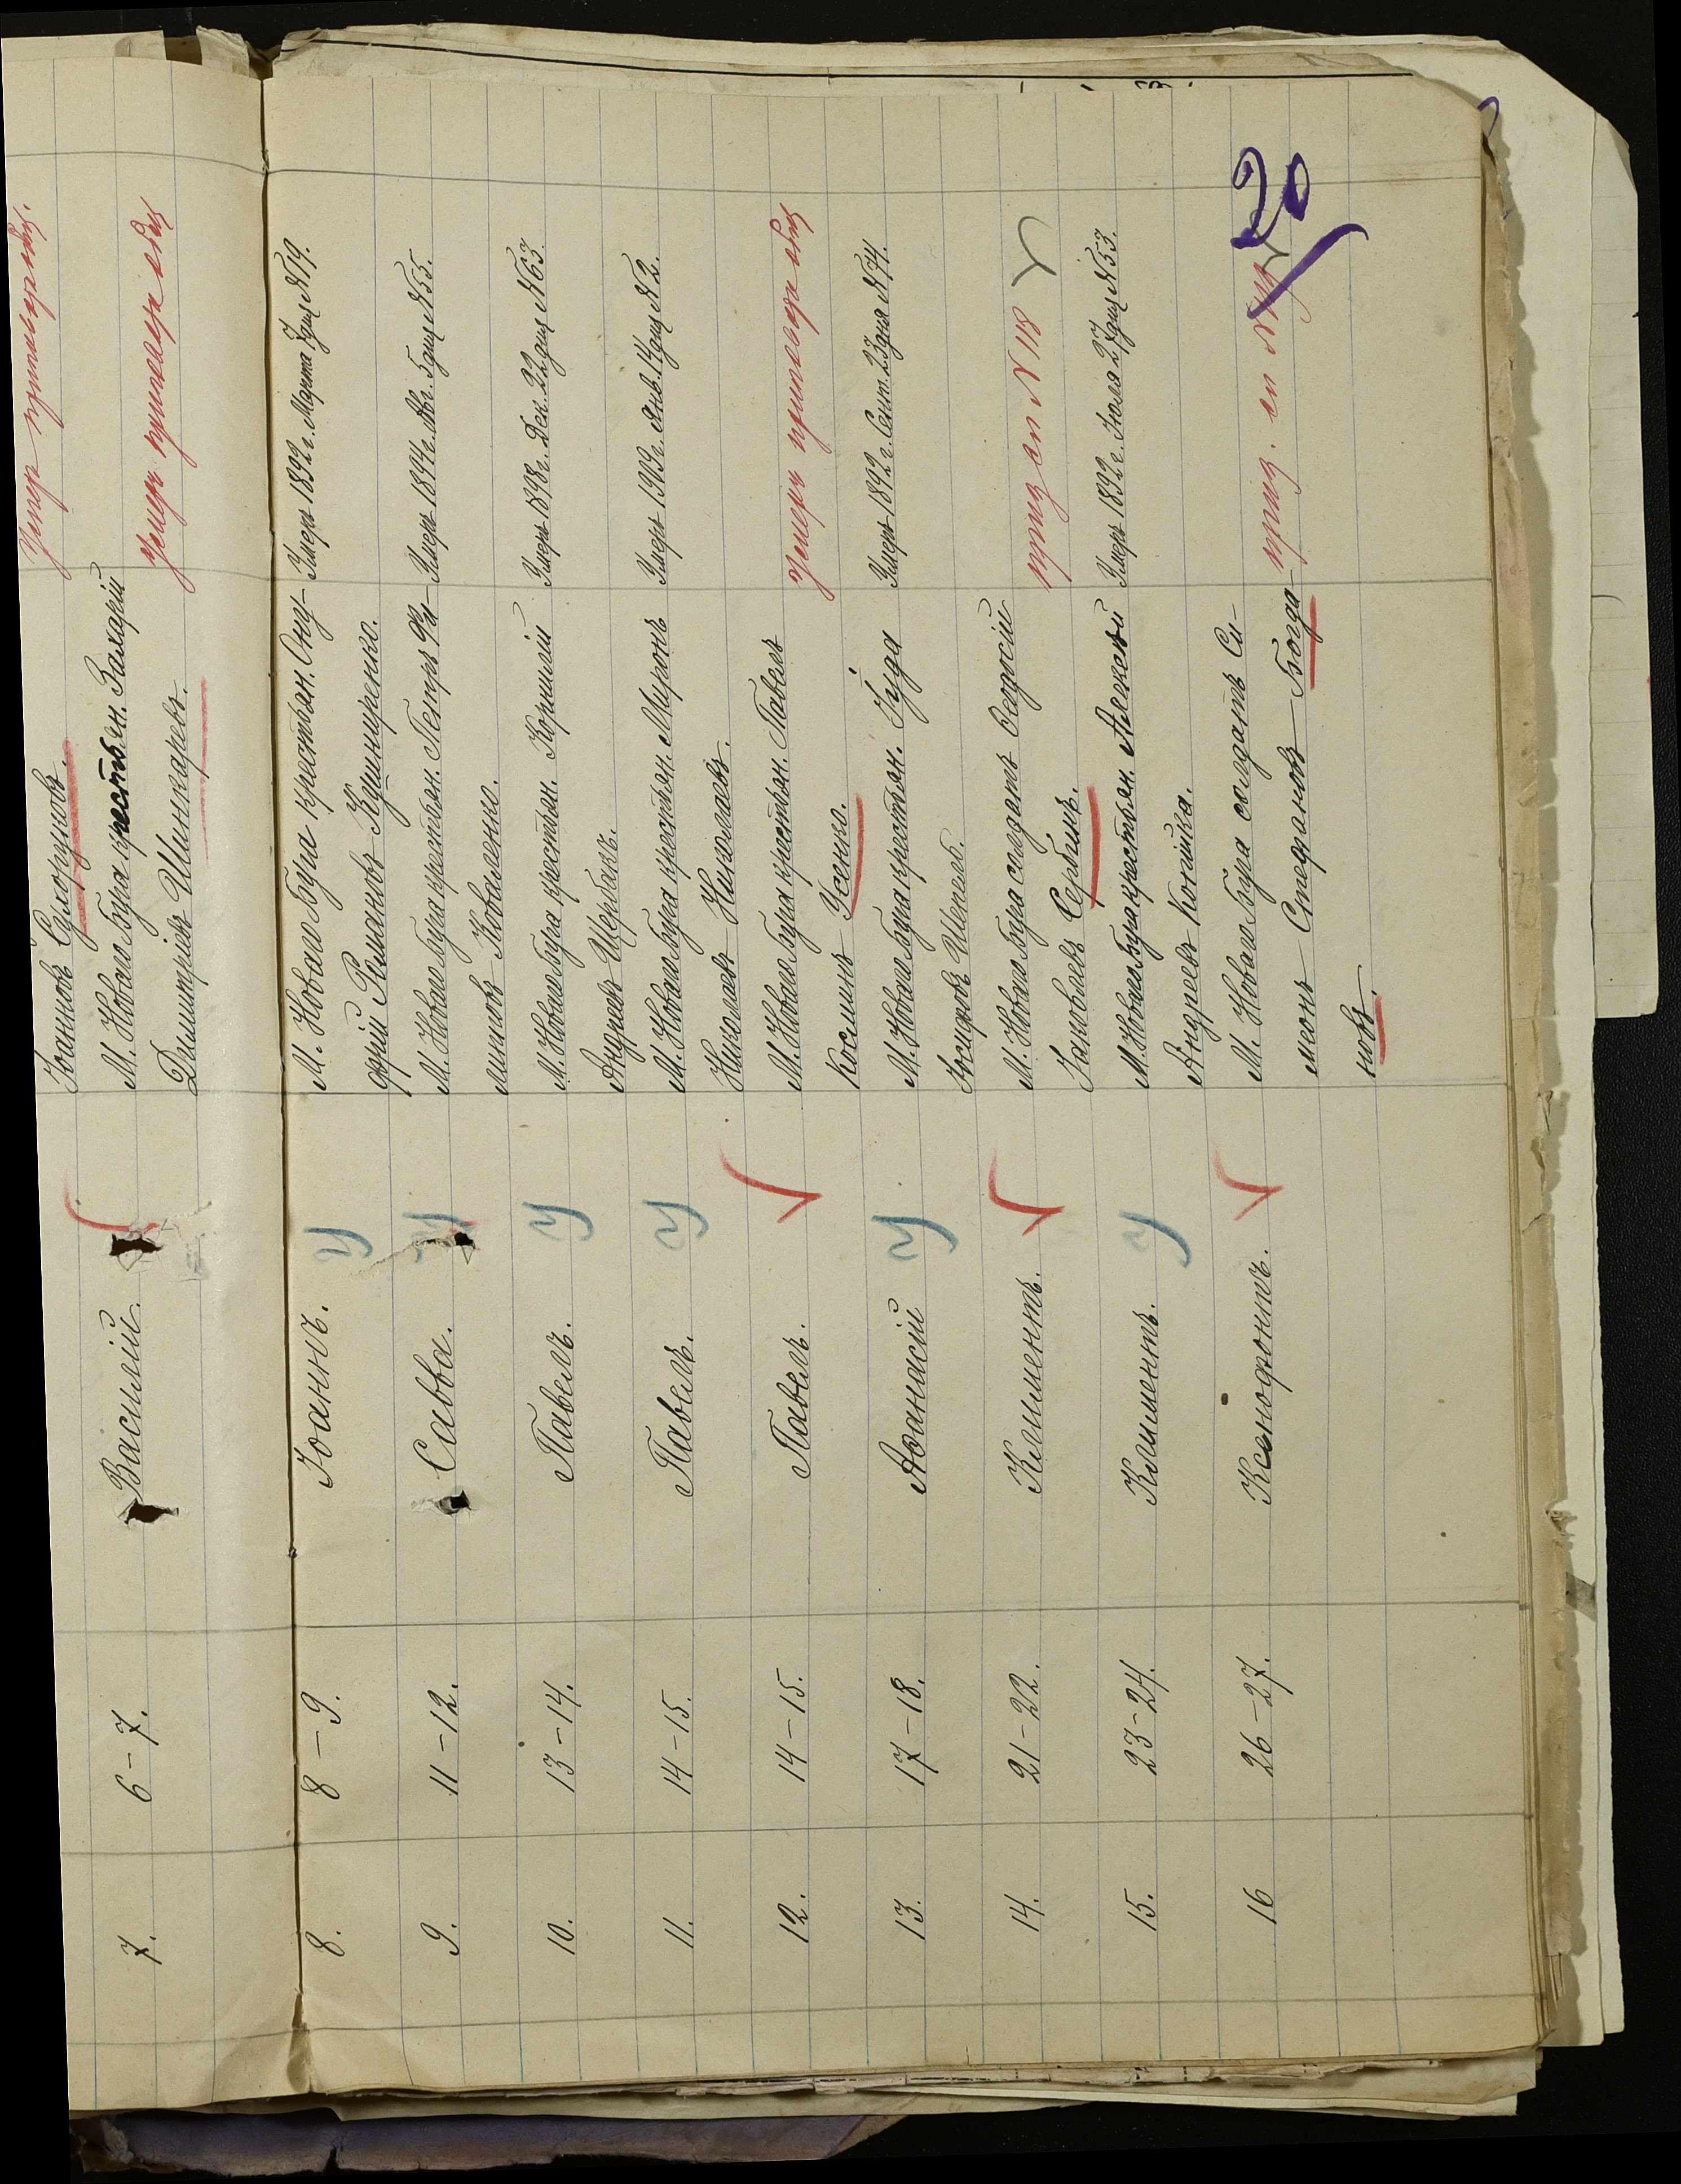 Іоанновъ Сухоруковъ.
Умеръ
7.
6 – 7.
Василій.
М. Новаго Буга крестьян. Захарій
Димитріевъ Шинкаревъ.
Умеръ
8.
8 – 9.
Іоаннъ.
У
М. Новаго Буга крестьян. Ону-
фрій Романовъ Кушниренко.
Умеръ 1892 г. Марта 7 дня №19.
9.
11 – 12.
Савва.
У
М. Новаго Буга крестьян. Петръ Фи-
липовъ Коваленко.
Умеръ 1894 г. Авг. 5 дня №55.
10.
13 – 14.
Павелъ.
У
М. Новаго Буга крестьян. Корнилій
Андреевъ Щербакъ.
Умеръ 1898 г. Дек. 22 дня №63
11.
14 – 15.
Павелъ.
У
М. Новаго Буга крестьян. Миронъ
Николаевъ Николаевъ.
Умеръ 1903 г. Янв. 14 дня №2.
12.
14 – 15.
Павелъ.
М. Новаго Буга крестьян. Павелъ
Косминъ Усенко.
Умеръ
13.
17 – 18.
Аѳанасій
У
М. Новаго Буга крестьян. Іуда
Іосифовъ Шепель.
Умеръ 1892 г. Сент. 23 дня №74.
14.
21 – 22.
Климентъ.
М. Новаго Буга солдатъ Ѳеодосій
Іаковлевъ Сербинъ.
приз сп №118
15.
23 – 24.
Климентъ.
У
М. Новаго Буга крестьян. Алексѣй
Андреевъ Кошийка.
Умеръ 1892 г. Іюля 27 дня №53.
16
26 – 27.
Ксенофонтъ.
М. Новаго Буга солдатъ Си-
меонъ Стефановъ Богда-
новъ.
приз. сп №
20